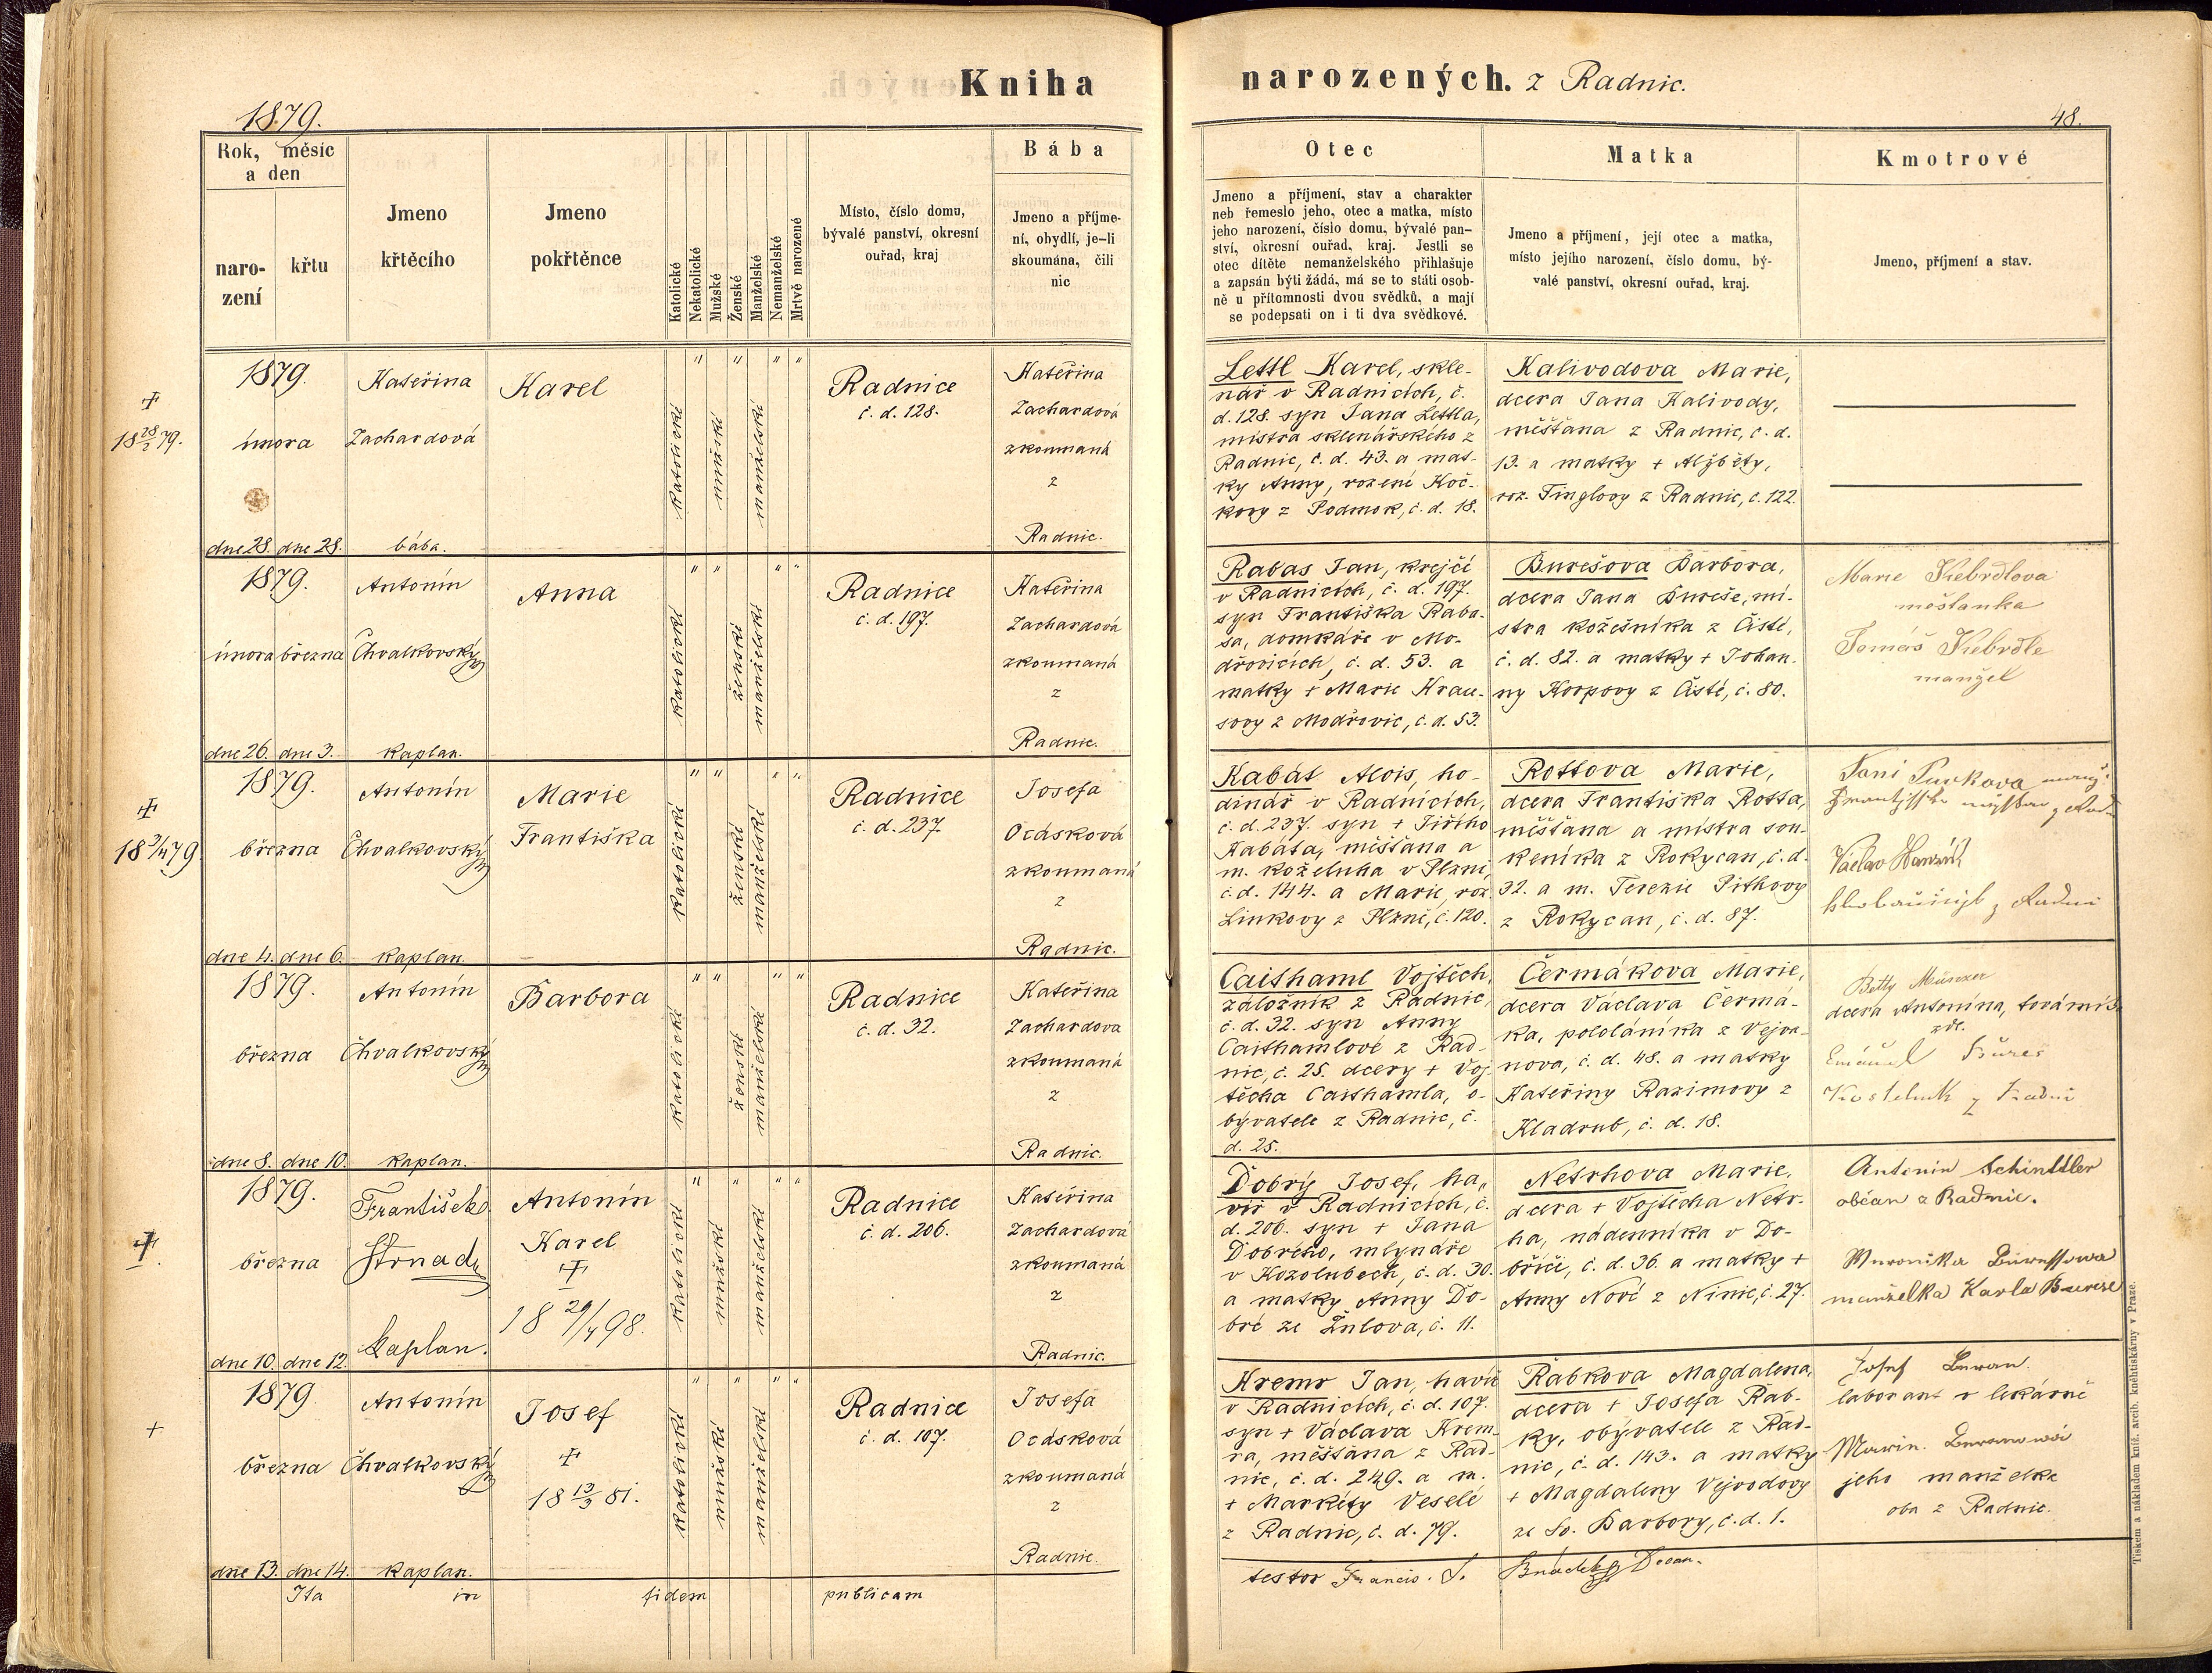 Kniha narozených. z Radnic.
1879.
48.
Rok, měsíc a den
naro-
zení
křtu
Jmeno
křtěcího
Jmeno
pokřtěnce
Katolické
Nekatolické
Mužské
Ženské
Manželské
Nemanželské
Mrtvě narozené
Místo, číslo domu,
bývalé panství, okresní
ouřad, kraj
Bába
Jmeno a příjme-
ní, obydlí, je-li
skoumána, čili
nic
Otec
Jmeno a příjmení, stav a charakter
neb řemeslo jeho, otec a matka, místo
jeho narození, číslo domu, bývalé pan-
ství, okresní ouřad, kraj. Jestli se
otec dítěte nemanželského přihlašuje
a zapsán býti žádá, má se to státi osob-
ně u přítomnosti dvou svědků, a mají
se podepsati on i ti dva svědkové.
Matka
Jmeno a příjmení, její otec a matka,
místo jejího narození, číslo domu, bý-
valé panství, okresní ouřad, kraj.
Kmotrové
Jmeno, příjmení a stav.
18 28/2 79.
1879.
února
dne 28. dne 28.
Kateřina
Zachardová
bába.
Karel
katolické
mužské
manželské
Radnice
č. d. 128.
Kateřina
Zachardová
zkoumaná
z
Radnic.
Lettl Karel, skle-
nář v Radnicích, č.
d. 128. syn Jana Lettla,
mistra sklenářského z
Radnic, č. d. 43. a mat-
ky Anny, rozené Koč-
kovy z Podmok, č. d. 18.
Kalivodova Marie,
dcera Jana Kalivody,
měšťana z Radnic, č. d.
13. a matky + Alžběty,
roz. Tinglovy z Radnic, č. 122.
1879.
února března
dne 26. dne 3.
Antonín
Chvalkovský
kaplan.
Anna
katolické
ženské
manželské
Radnice
č. d. 197.
Kateřina
Zachardová
zkoumaná
z
Radnic.
Rabas Jan, krejčí
v Radnicích, č. d. 197.
syn Františka Raba-
sa, domkáře v Mo-
dřovicích, č. d. 53. a
matky + Marie Krau-
sovy z Modřovic, č. d. 53.
Burešova Barbora,
dcera Jana Bureše, mi-
stra kožešníka z Čisté,
č. d. 82. a matky + Johan-
ny Korpovy z Čisté, č. 80.
Marie Kebrdlova
měšťanka
Tomáš Kebrdle
manžel
18 3/4 79
1879.
března
dne 4. dne 6.
Antonín
Chvalkovský
kaplan.
Marie
Františka
katolické
ženské
manželské
Radnice
č. d. 237.
Josefa
Ocásková
zkoumaná
z
Radnic.
Kabát Alois, ho-
dinář v Radnicích,
č. d. 237. syn + Jiřího
Kabáta, měšťana a
m. koželuha v Plzni,
č. d. 144. a Marie, roz.
Linkovy z Plzně, č. 120.
Rottova Marie,
dcera Františka Rotta,
měšťana a mistra sou-
keníka z Rokycan, č. d.
32. a m. Terezie Pithovy
z Rokycan, č. d. 87.
Václav
1879.
března
dne 8. dne 10.
Antonín
Chvalkovský
kaplan.
Barbora
katolické
ženské
manželské
Radnice
č. d. 32.
Kateřina
Zachardova
zkoumaná
z
Radnic.
Caithaml Vojtěch,
záložník z Radnic,
č. d. 32. syn Anny
Caithamlové z Rad-
nic, č. 25. dcery + Voj-
těcha Caithamla, o-
byvatele z Radnic, č.
d. 25.
Čermákova Marie,
dcera Václava Čermá-
ka, pololáníka z Vejva-
nova, č. d. 48. a matky
Kateřiny Razimovy z
Kladrub, č. d. 18.
Betty
dcera Antonína,
zdt.
Bureš
1879.
března
dne 10. dne 12.
František
Strnad
kaplan.
Antonín
Karel
18 29/4 98.
katolické
mužské
manželské
Radnice
č. d. 206.
Kateřina
Zachardová
zkoumaná
z
Radnic.
Dobrý Josef, ha-
víř v Radnicích, č.
d. 206. syn + Jana
Dobrého, mlynáře
v Kozolubech, č. d. 30.
a matky Anny Do-
bré ze Žulova, č. 11.
Netrhova Marie,
dcera + Vojtěcha Netr-
ha, nádenníka v Do-
bříči, č. d. 36. a matky +
Anny Nové z Ninic, č. 27.
Antonín Schindler
občan z Radnic.
manželka Karla Bureše
+
1879
března
dne 13. dne 14.
Antonín
Chvalkovský
kaplan.
Josef
18 13/9 81.
katolické
mužské
manželské
Radnice
č. d. 107.
Josefa
Ocásková
zkoumaná
z
Radnic.
Kremr Jan, havíř
v Radnicích, č. d. 107.
syn + Václava Krem-
ra, měšťana z Rad-
nic, č. d. 249. a m.
+ Markéty Veselé
z Radnic, č. d. 79.
Řabkova Magdalena,
dcera + Josefa Řab-
ky, obyvatele z Rad-
nic, č. d. 143. a matky
+ Magdaleny Vejvodovy
ze Sv. Barbory, č. d. 1.
Josef Beran
laborant v lekárně
jeho manželka
oba z Radnic.
Ita in fidem publicam
testor Francis. S. Decan.
Tiskem a nákladem kníž. arcib. kněhtiskárny v Praze.